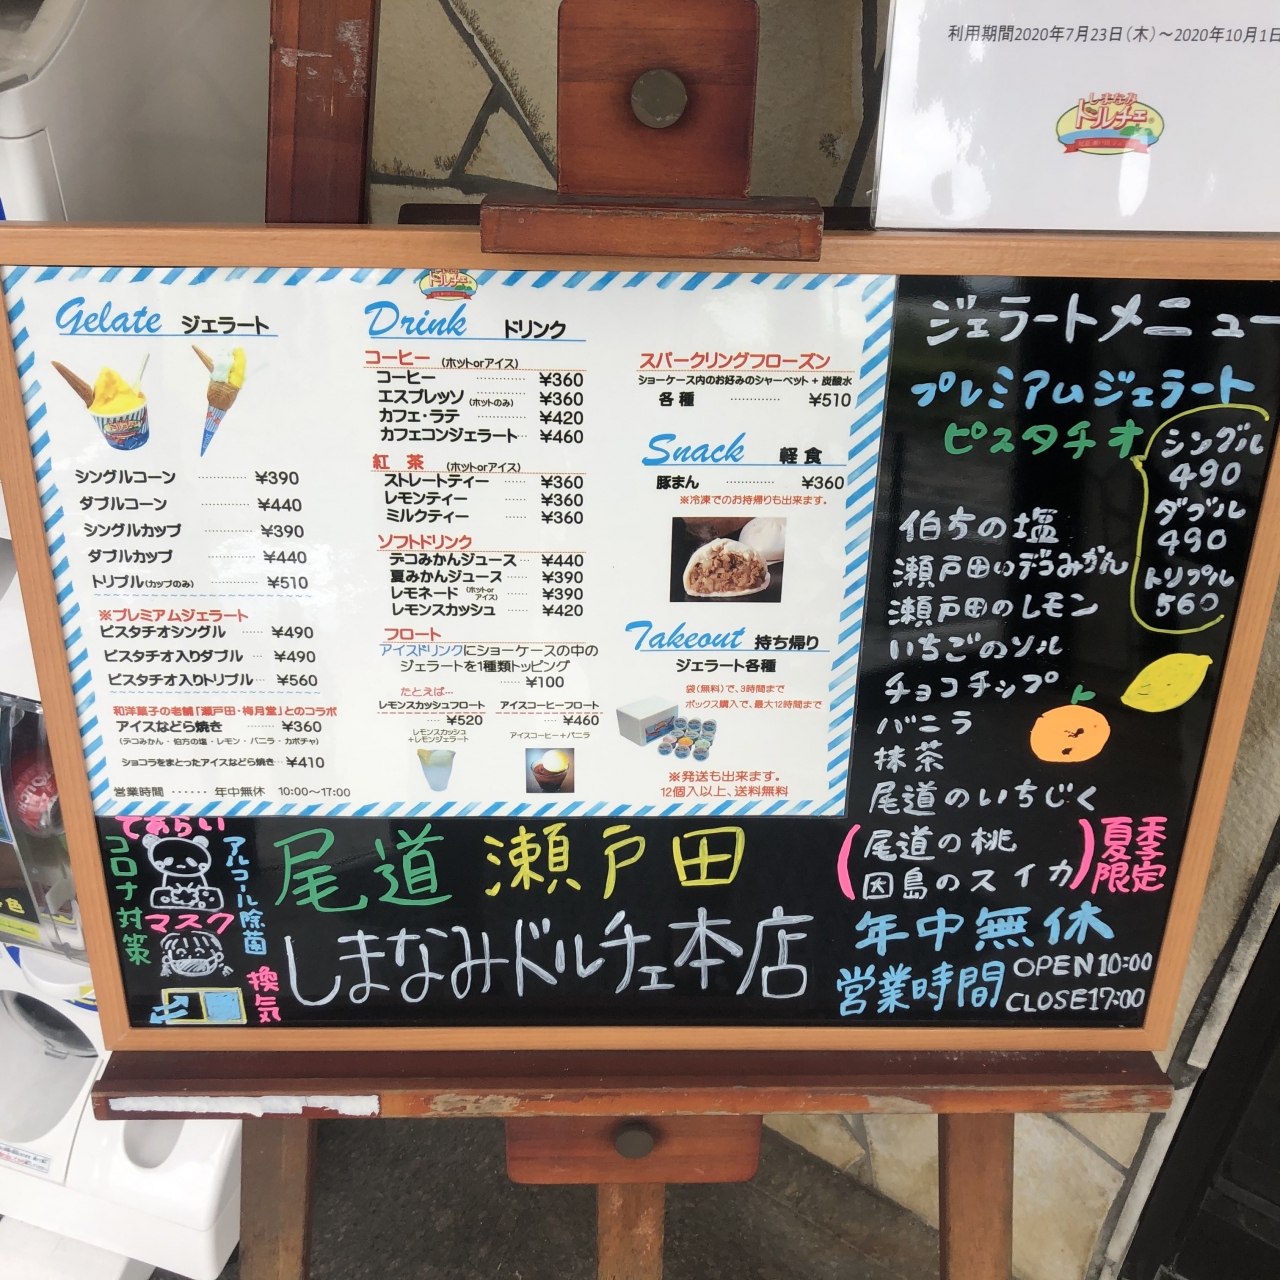 利用期間2020年7月23日(木)～2020年10月1日
しまなみ
ドルチェ
ドルチェ
Gelate ジェラート
シングルコーン ………… ¥390
ダブルコーン ………… ¥440
シングルカップ ………… ¥390
ダブルカップ ………… ¥440
トリプル(カップのみ) ………… ¥510
※プレミアムジェラート
ピスタチオシングル …… ¥490
ピスタチオ入りダブル … ¥490
ピスタチオ入りトリプル… ¥560
和洋菓子の老舗「瀬戸田・梅月堂」とのコラボ
アイスなどら焼き ………… ¥360
(デコみかん・伯方の塩・レモン・バニラ・カボチャ)
ショコラをまとったアイスなどら焼き… ¥410
営業時間 …… 年中無休 10:00～17:00
Drink ドリンク
コーヒー (ホットorアイス)
コーヒー ………… ¥360
エスプレッソ (ホットのみ) ¥360
カフェ・ラテ ………… ¥420
カフェコンジェラート… ¥460
紅茶 (ホットorアイス)
ストレートティー ………… ¥360
レモンティー ………… ¥360
ミルクティー ………… ¥360
ソフトドリンク
デコみかんジュース …… ¥440
夏みかんジュース …… ¥390
レモネード (ホットorアイス) …… ¥390
レモンスカッシュ …… ¥420
フロート
アイスドリンクにショーケースの中の
ジェラートを1種類トッピング
…… ¥100
たとえば…
レモンスカッシュフロート
…… ¥520
レモンスカッシュ
+レモンジェラート
アイスコーヒーフロート
…… ¥460
アイスコーヒー+バニラ
スパークリングフローズン
ショーケース内のお好みのシャーベット + 炭酸水
各種 ………… ¥510
Snack 軽食
豚まん ………… ¥360
※冷凍でのお持帰りも出来ます。
Takeout 持ち帰り
ジェラート各種
袋(無料)で、3時間まで
ボックス購入で、最大12時間まで
※発送も出来ます。
12個入以上、送料無料
ジェラートメニュー
プレミアムジェラート
ピスタチオ
シングル
490
ダブル
490
トリプル
560
伯方の塩
瀬戸田のデコみかん
瀬戸田のレモン
いちごのソル
チョコチップ
バニラ
抹茶
尾道のいちじく
尾道の桃
因島のスイカ
夏季
限定
年中無休
営業時間 OPEN10:00
CLOSE17:00
てあらい
コロナ対策
アルコール除菌
マスク
換気
尾道 瀬戸田
しまなみドルチェ本店